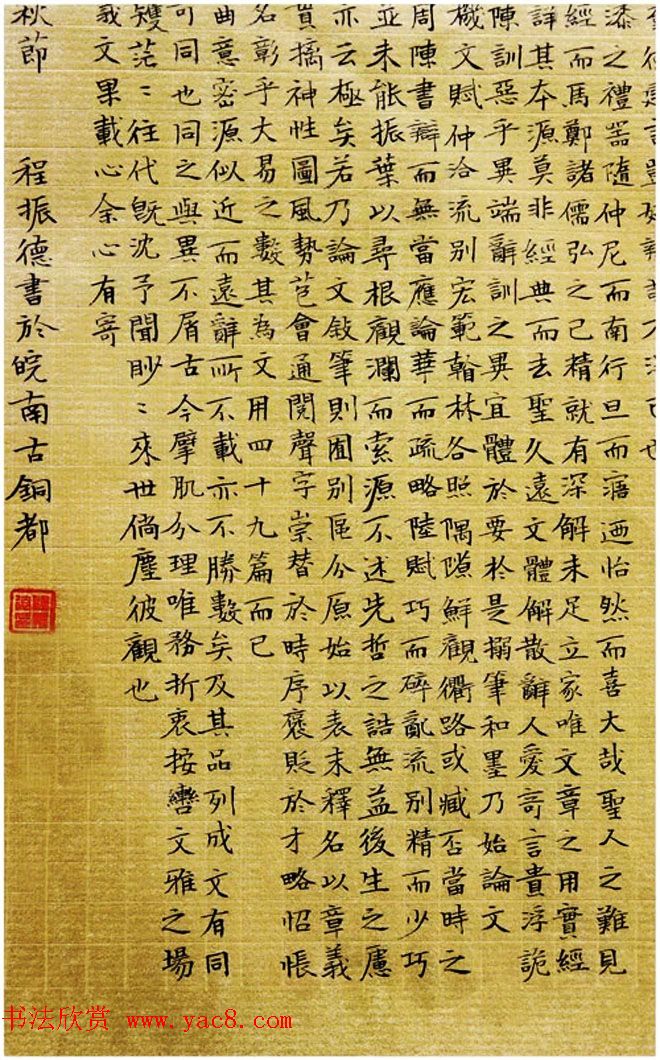 漆之禮器隨仲尼而南行旦而寤迺怡然而喜大哉聖人之難見
經而馬鄭諸儒弘之已精就有深解未足立家唯文章之用實經
詳其本源莫非經典而去聖久遠文體解散辭人愛奇言貴浮詭
陳訓惡乎異端辭訓之異宜體於要於是搦筆和墨乃始論文
機文賦仲洽流別宏範翰林各照隅隙鮮觀衢路或臧否當時之
周陳書辯而無當應論華而疏略陸賦巧而碎亂流別精而少巧
並未能振葉以尋根觀瀾而索源不述先哲之誥無益後生之慮
亦云極矣若乃論文敍筆則囿別區分原始以表末釋名以章義
貫摛神性圖風勢苞會通閱聲字崇替於時序褒貶於才略怊悵
名彰乎大易之數其為文用四十九篇而已
曲意密源似近而遠辭所不載亦不勝數矣及其品列成文有同
可同也同之與異不屑古今擘肌分理唯務折衷按轡文雅之場
矱茫々往代旣沈予聞眇々來世倘塵彼觀也
哉文果載心余心有寄
秋節 程振德書於皖南古銅都
书法欣赏 www.yac8.com